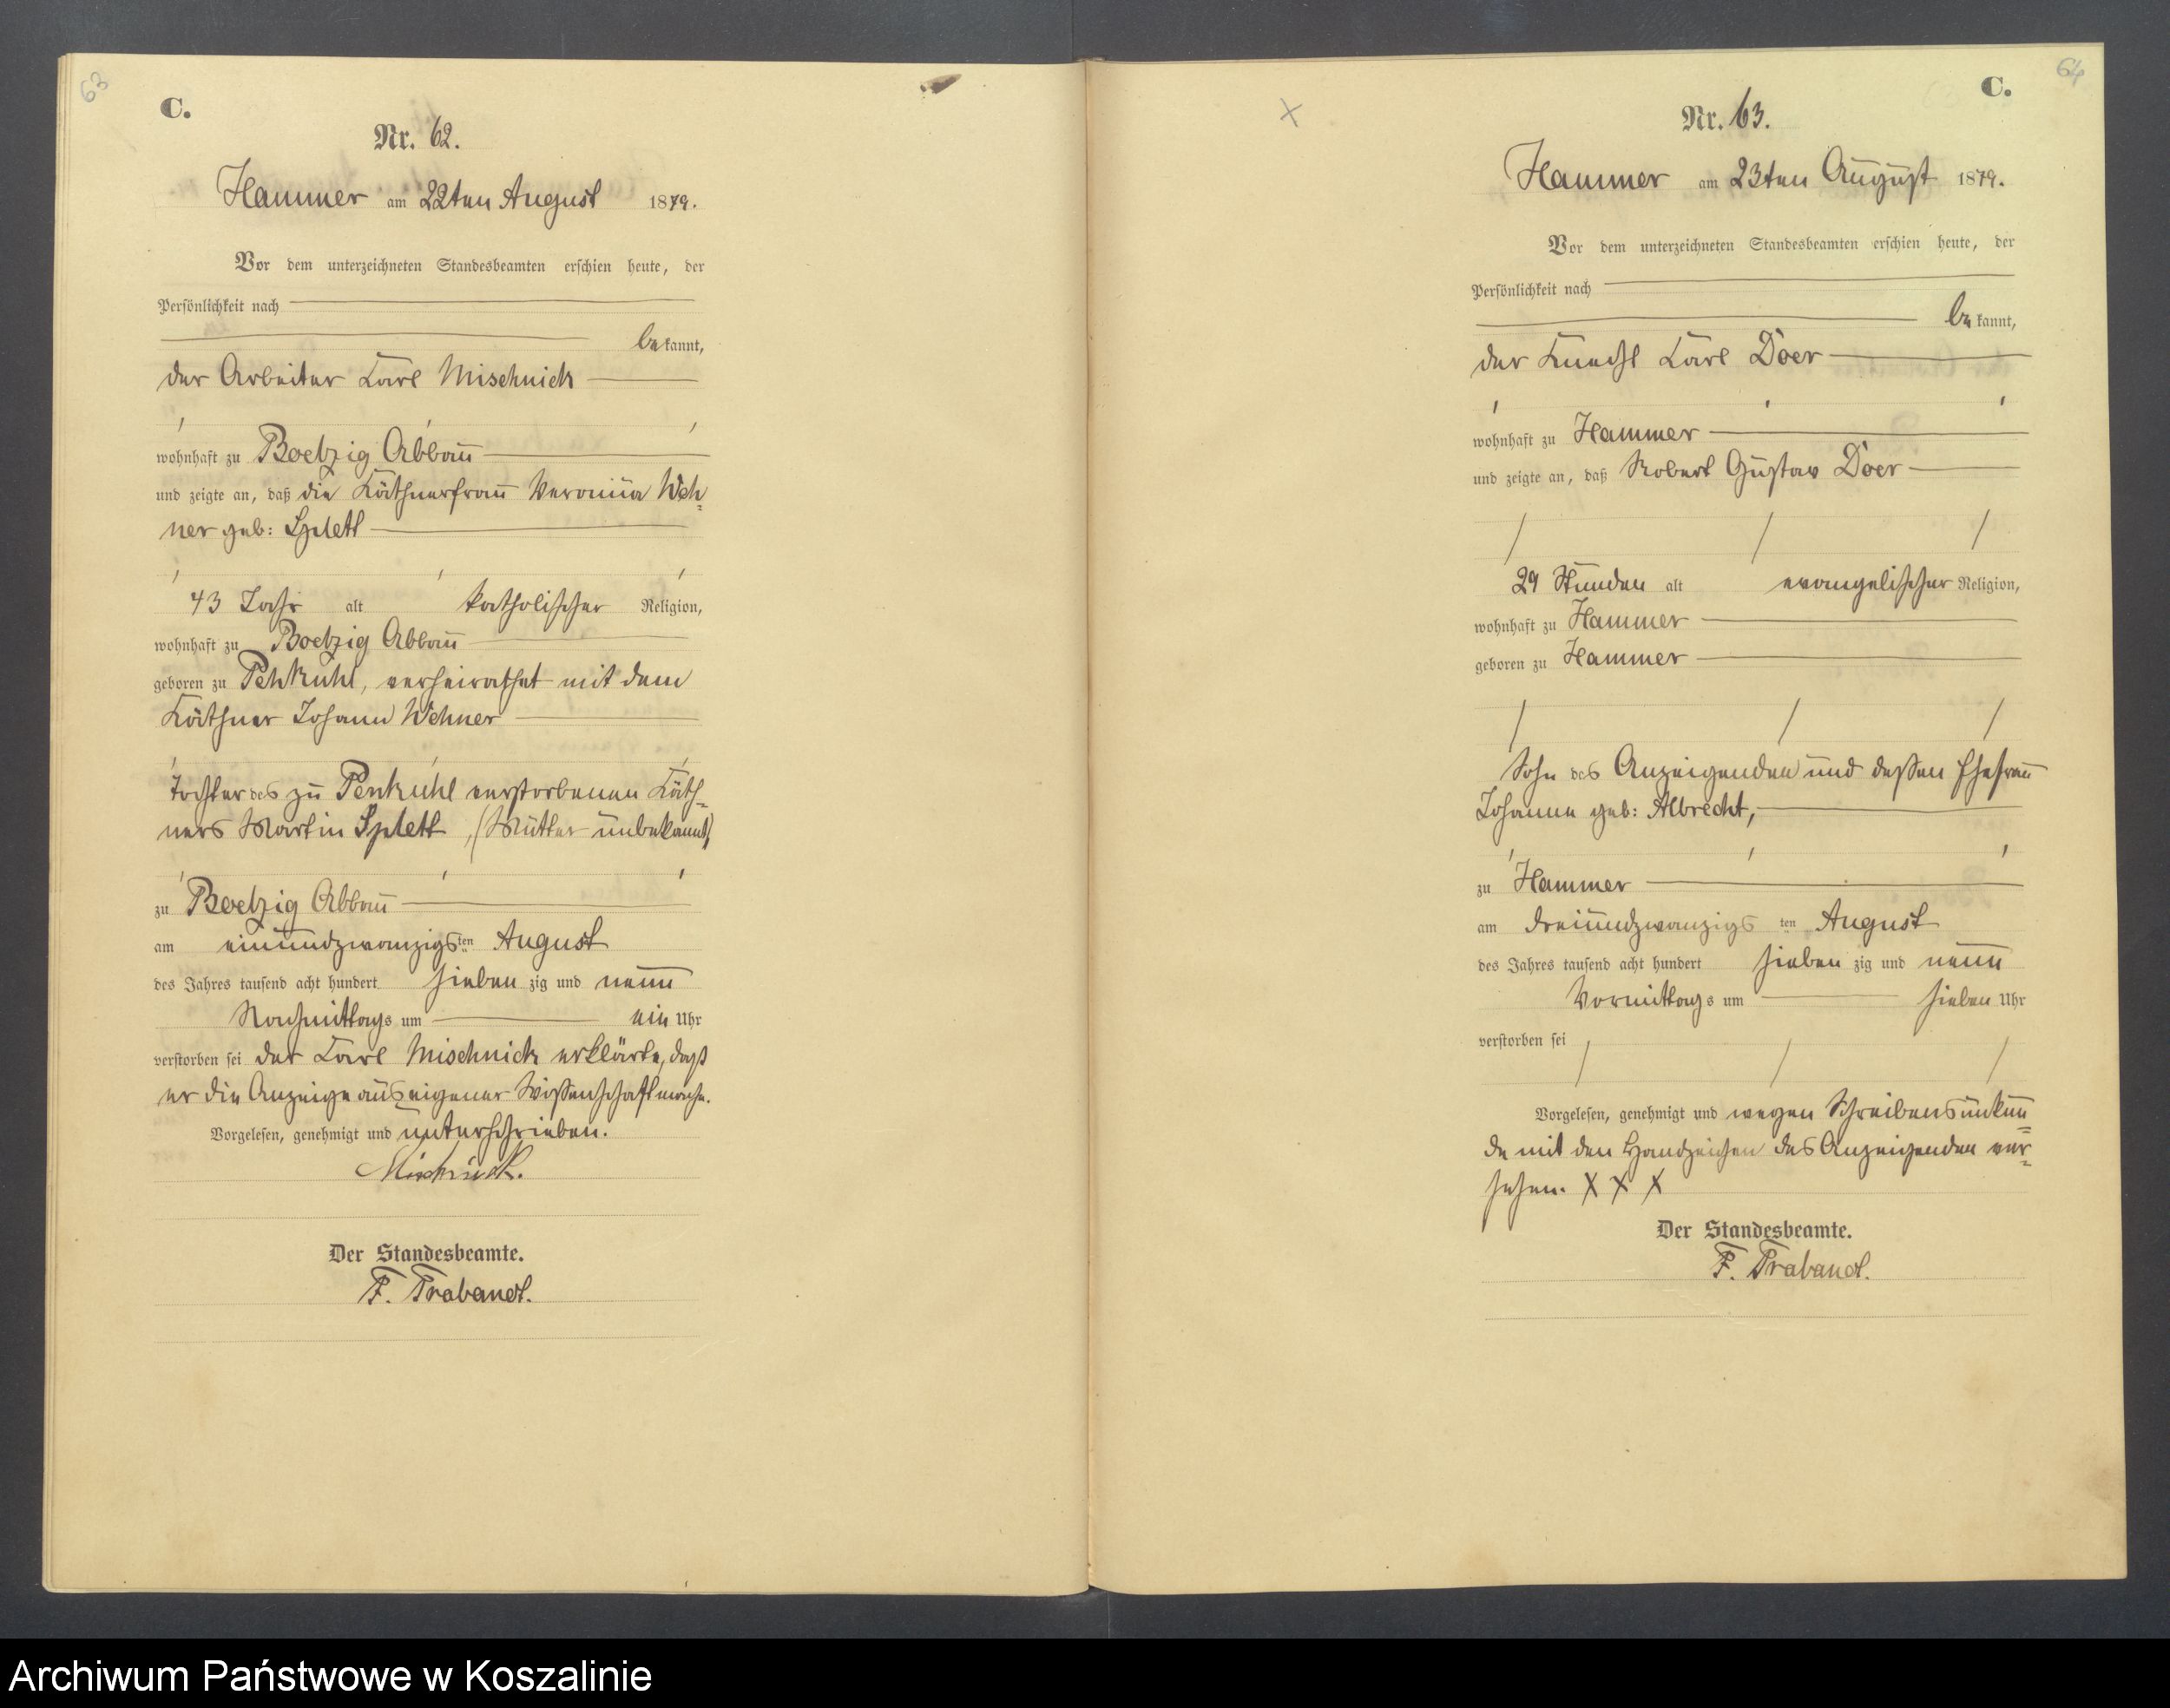 63
C.
Nr. 62.
Hammer am 22ten August 1879.
Vor dem unterzeichneten Standesbeamten erschien heute, der
Persönlichkeit nach
bekannt,
der Arbeiter Carl Mischnick
wohnhaft zu Boetzig Abbau
und zeigte an, daß die Käthnerfrau Veronika Weh=
ner geb: Splett
43 Jahr alt katholischer Religion,
wohnhaft zu Boetzig Abbau
geboren zu Penkuhl, verheirathet mit dem
Käthner Johann Wehner
Tochter des zu Penkuhl verstorbenen Käth=
ners Martin Splett, (Mutter unbekannt)
zu Boetzig Abbau
am einundzwanzigsten August
des Jahres tausend acht hundert siebenzig und neun
Nachmittags um ein Uhr
verstorben sei der Carl Mischnick erklärte, daß
er die Anzeige aus eigener Wissenschaft mache.
Vorgelesen, genehmigt und unterschrieben.
Mischnick.
Der Standesbeamte.
F. Trabandt.
64
C.
Nr. 63.
Hammer am 23ten August 1879.
Vor dem unterzeichneten Standesbeamten erschien heute, der
Persönlichkeit nach
bekannt,
der Knecht Carl Doer
wohnhaft zu Hammer
und zeigte an, daß Robert Gustav Doer
29 Stunden alt evangelischer Religion,
wohnhaft zu Hammer
geboren zu Hammer
Sohn des Anzeigenden und dessen Ehefrau
Johanne geb: Albrecht,
zu Hammer
am dreiundzwanzigsten August
des Jahres tausend acht hundert siebenzig und neun
Vormittags um sieben Uhr
verstorben sei
Vorgelesen, genehmigt und wegen Schreibensunkun=
de mit den Handzeichen des Anzeigenden ver=
sehen. X X X
Der Standesbeamte.
F. Trabandt.
Archiwum Państwowe w Koszalinie